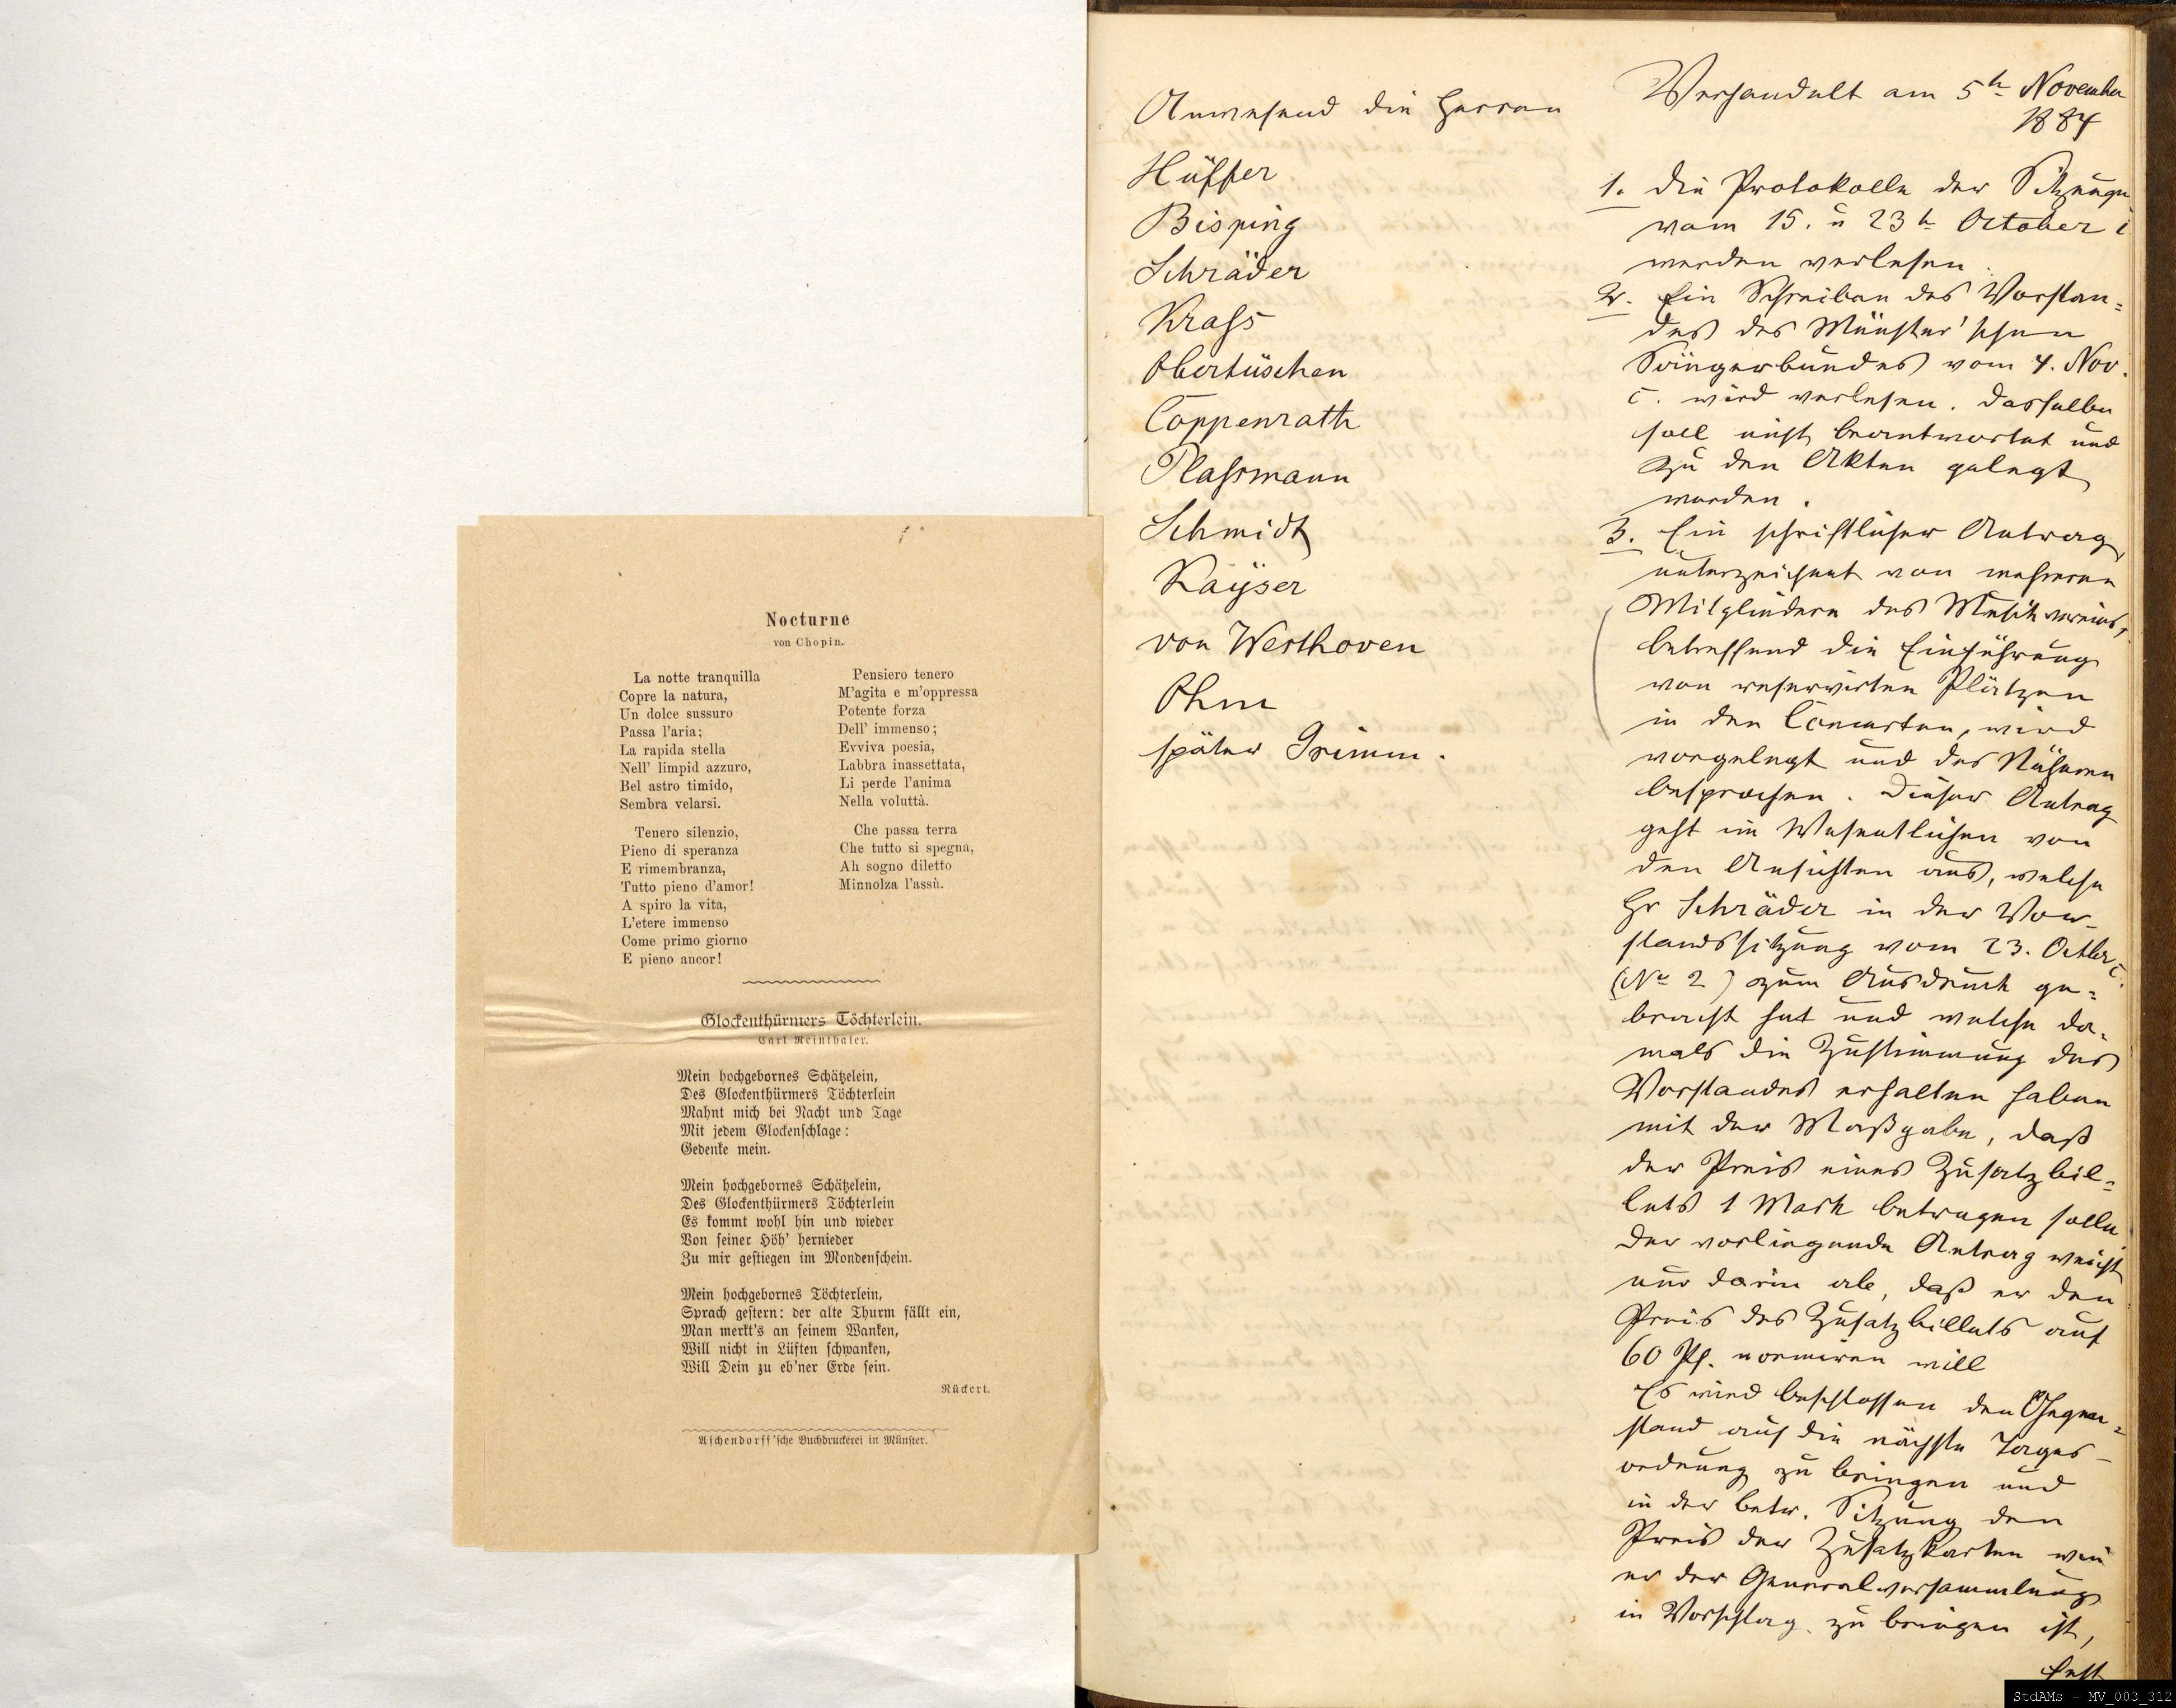 Nocturne
von Chopin.
La notte tranquilla
Copre la natura,
Un dolce sussuro
Passa l'aria;
La rapida stella
Nell' limpid azzuro,
Bel astro timido,
Sembra velarsi.
Tenero silenzio,
Pieno di speranza
E rimembranza,
Tutto pieno d'amor!
A spiro la vita,
L'etere immenso
Come primo giorno
E pieno ancor!
Pensiero tenero
M'agita e m'oppressa
Potente forza
Dell' immenso;
Evviva poesia,
Labbra inassettata,
Li perde l'anima
Nella voluttà.
Che passa terra
Che tutto si spegna,
Ah sogno diletto
Minnolza l'assù.
Glockenthürmers Töchterlein.
Carl Reinthaler.
Mein hochgebornes Schätzelein,
Des Glockenthürmers Töchterlein
Mahnt mich bei Nacht und Tage
Mit jedem Glockenschlage:
Gedenke mein.
Mein hochgebornes Schätzelein,
Des Glockenthürmers Töchterlein
Es kommt wohl hin und wieder
Von seiner Höh' hernieder
Zu mir gestiegen im Mondenschein.
Mein hochgebornes Töchterlein,
Sprach gestern: der alte Thurm fällt ein,
Man merkt's an seinem Wanken,
Will nicht in Lüften schwanken,
Will Dein zu eb'ner Erde sein.
Rückert.
Aschendorff'sche Buchdruckerei in Münster.
Anwesend die Herren
Hüffer
Bisping
Schräder
Krass
Obertüschen
Coppenrath
Plassmann
Schmidt
Kayser
von Westhoven
Ohm
später Grimm.
Verhandelt am 5t November
1884
1. Die Protokolle der Sitzungen
vom 15. u 23t October
werden verlesen.
2. Ein Schreiben des Vorstan=
des des Münster'schen
Sängerbundes vom 4. Nov.
c. wird verlesen. Dasselbe
soll nicht beantwortet und
zu den Akten gelegt
werden.
3. Ein schriftlicher Antrag,
unterzeichnet von mehreren
Mitgliedern des Musikvereins,
betreffend die Einführung
von reservirten Plätzen
in den Concerten, wird
vorgelegt und des Näheren
besprochen. Dieser Antrag
geht im Wesentlichen von
den Ansichten aus, welche
Hr Schräder in der Vor=
standssitzung vom 23. Octber c.
(No 2) zum Ausdruck ge=
bracht hat und welche da=
mals die Zustimmung des
Vorstandes erhalten haben
mit der Maßgabe, daß
der Preis eines Zusatzbil=
lets 1 Mark betragen solle
Der vorliegende Antrag weicht
nur darin ab, daß er den
Preis des Zusatzbillets auf
60 Pf. normiren will
Es wird beschlossen den Gegen=
stand auf die nächste Tages=
ordnung zu bringen und
in der betr. Sitzung den
Preis der Zusatzkarten wie
er der Generalversammlung
in Vorschlag zu bringen ist,
fest
StdAMs - MV_003_312